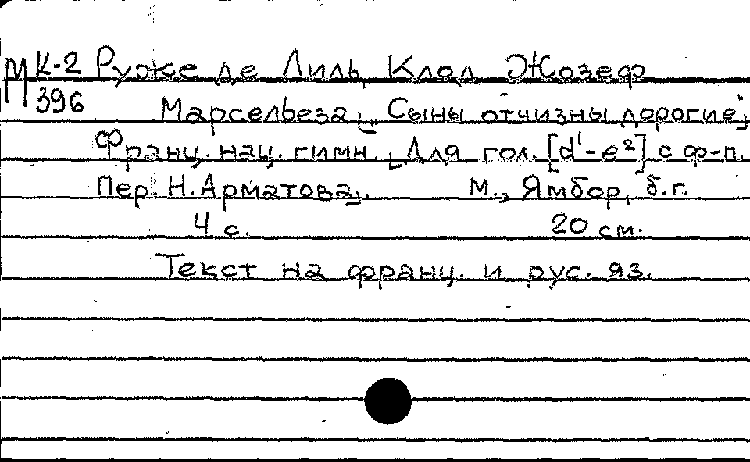 М К-2 Руже де Лиль, Клод Жозеф
396 Марсельеза; „Сыны отчизны дорогие;
Франц. нац. гимн. Для гол. [d¹-e²] с ф-п.
Пер. Н. Арматова. М., Ямбор, б.г.
4 с. 20 см.
Текст на франц. и рус. яз.